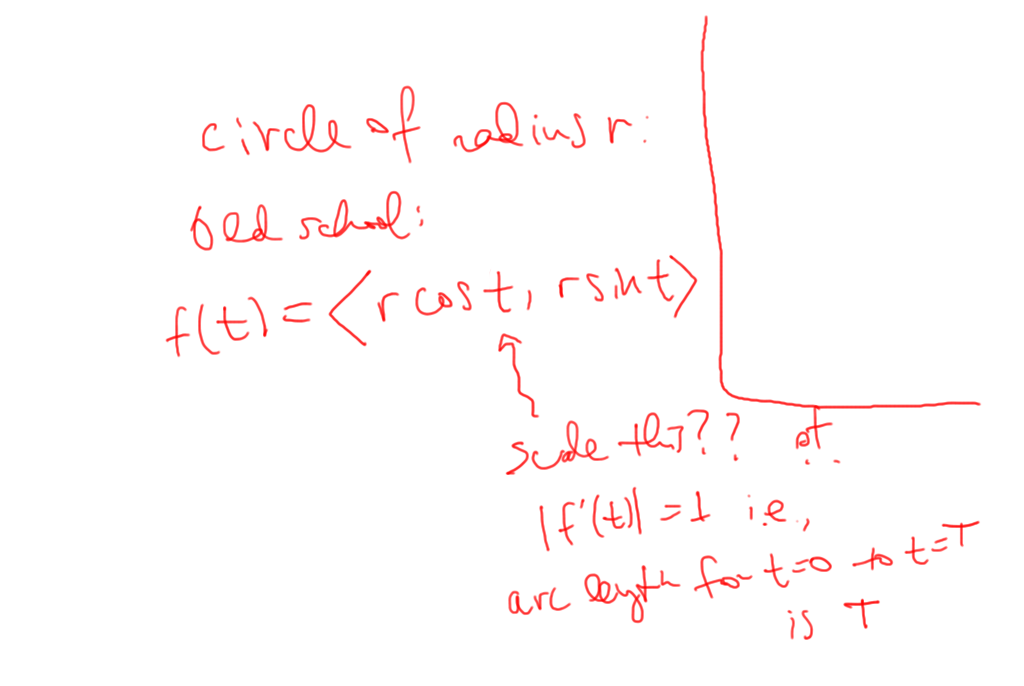 circle of radius r:
old school:
f(t) = ⟨r cos t, r sin t⟩
scale this??
|f'(t)| = 1 i.e.,
arc length for t=0 to t=T
is T